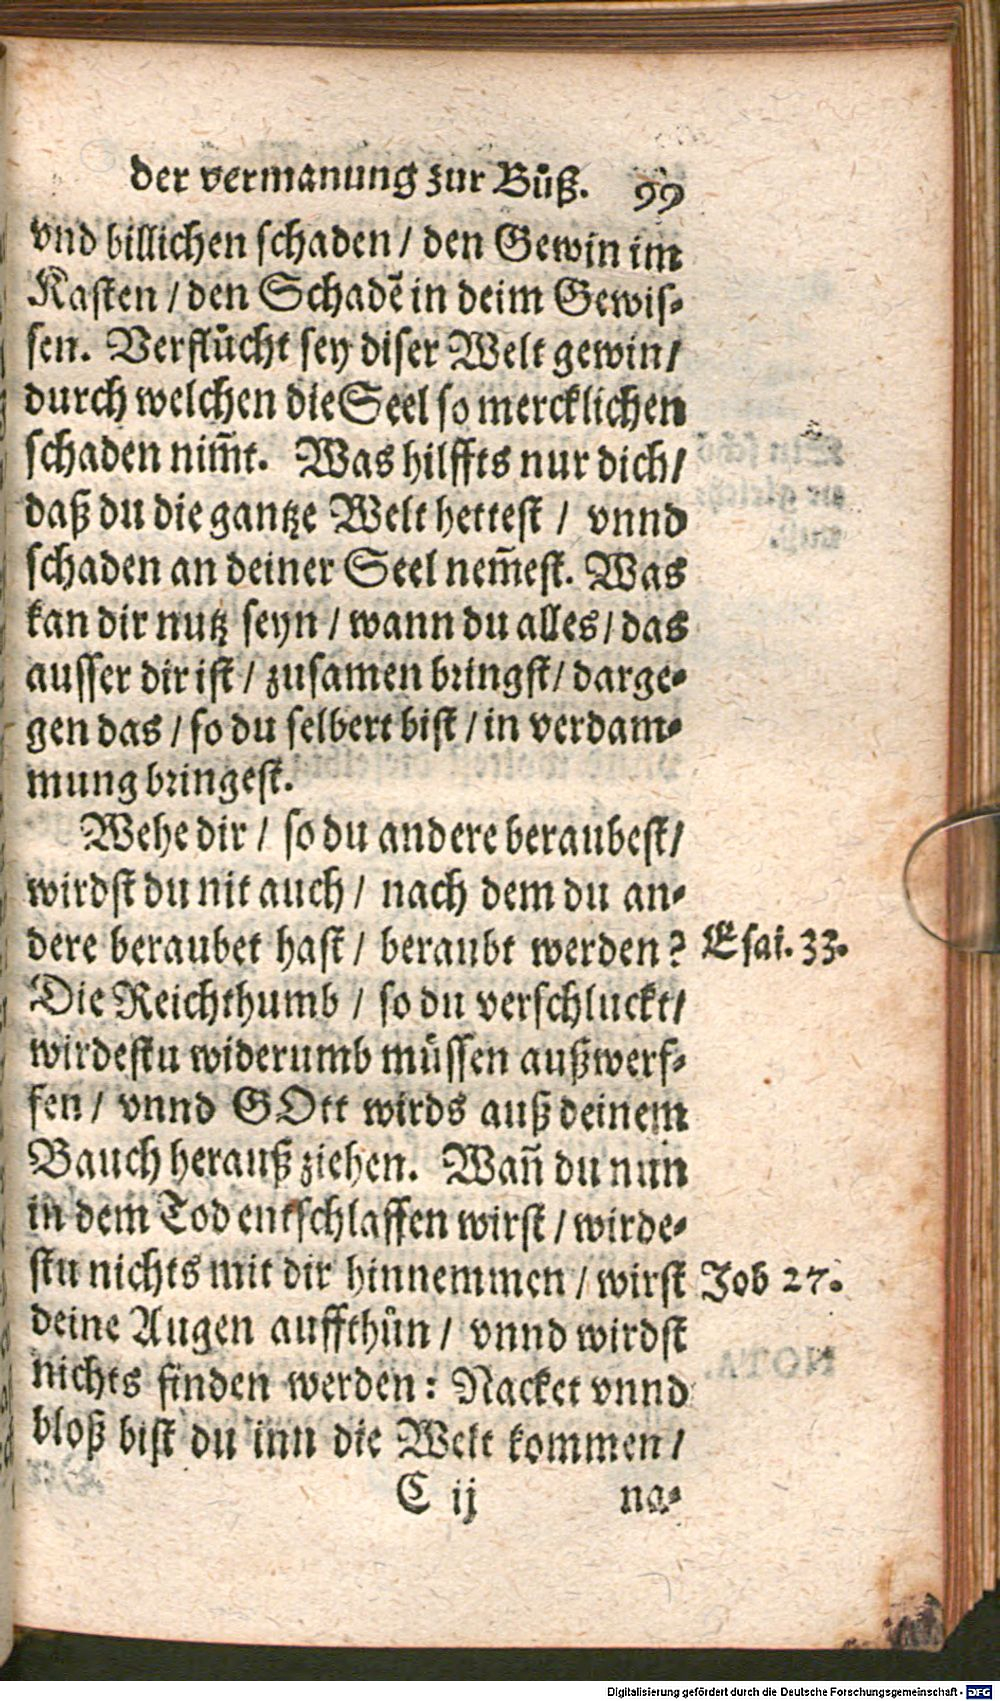 der vermanung zur Bůß. 99
vnd billichen schaden / den Gewin im
Kasten / den Schadē in deim Gewis-
sen. Verflůcht sey diser Welt gewin /
durch welchen die Seel so mercklichen
schaden nim̄t. Was hilffts nur dich /
daß du die gantze Welt hettest / vnnd
schaden an deiner Seel nem̄est. Was
kan dir nutz seyn / wann du alles / das
ausser dir ist / zusamen bringst / darge-
gen das / so du selbert bist / in verdam-
mung bringest.
Wehe dir / so du andere beraubest /
wirdst du nit auch / nach dem du an-
dere beraubet hast / beraubt werden? Esai. 33.
Die Reichthumb / so du verschluckt /
wirdestu widerumb müssen außwerf-
fen / vnnd GOtt wirds auß deinem
Bauch herauß ziehen. Wan̄ du nun
in dem Tod entschlaffen wirst / wirde-
stu nichts mit dir hinnemmen / wirst Job 27.
deine Augen auffthůn / vnnd wirdst
nichts finden werden: Nacket vnnd
bloß bist du inn die Welt kommen /
C ij na-
Digitalisierung gefördert durch die Deutsche Forschungsgemeinschaft - DFG